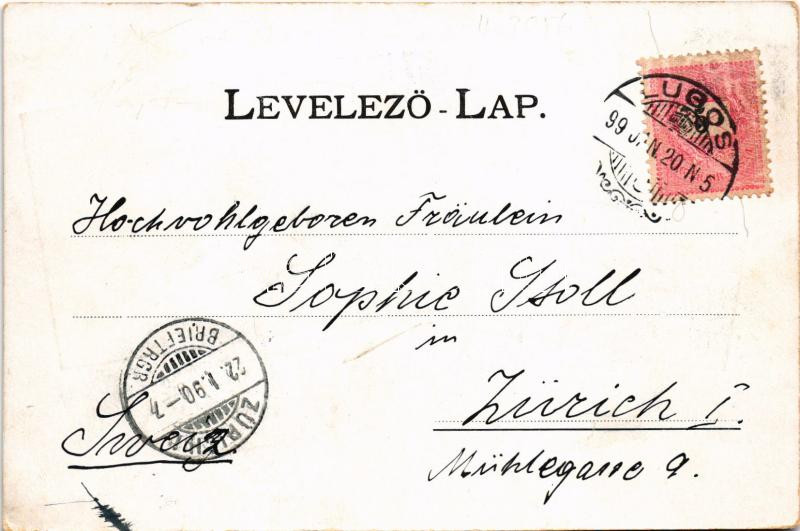 LEVELEZÖ - LAP.
LUGOS
99 JAN 20 N 5
Hochvohlgeboren Fräulein
Sophie Stoll
in
Zürich I.
Mühlegasse 9.
BRIEFTRGR.
22. I. 90.-7
ZÜRICH
Sveiz.